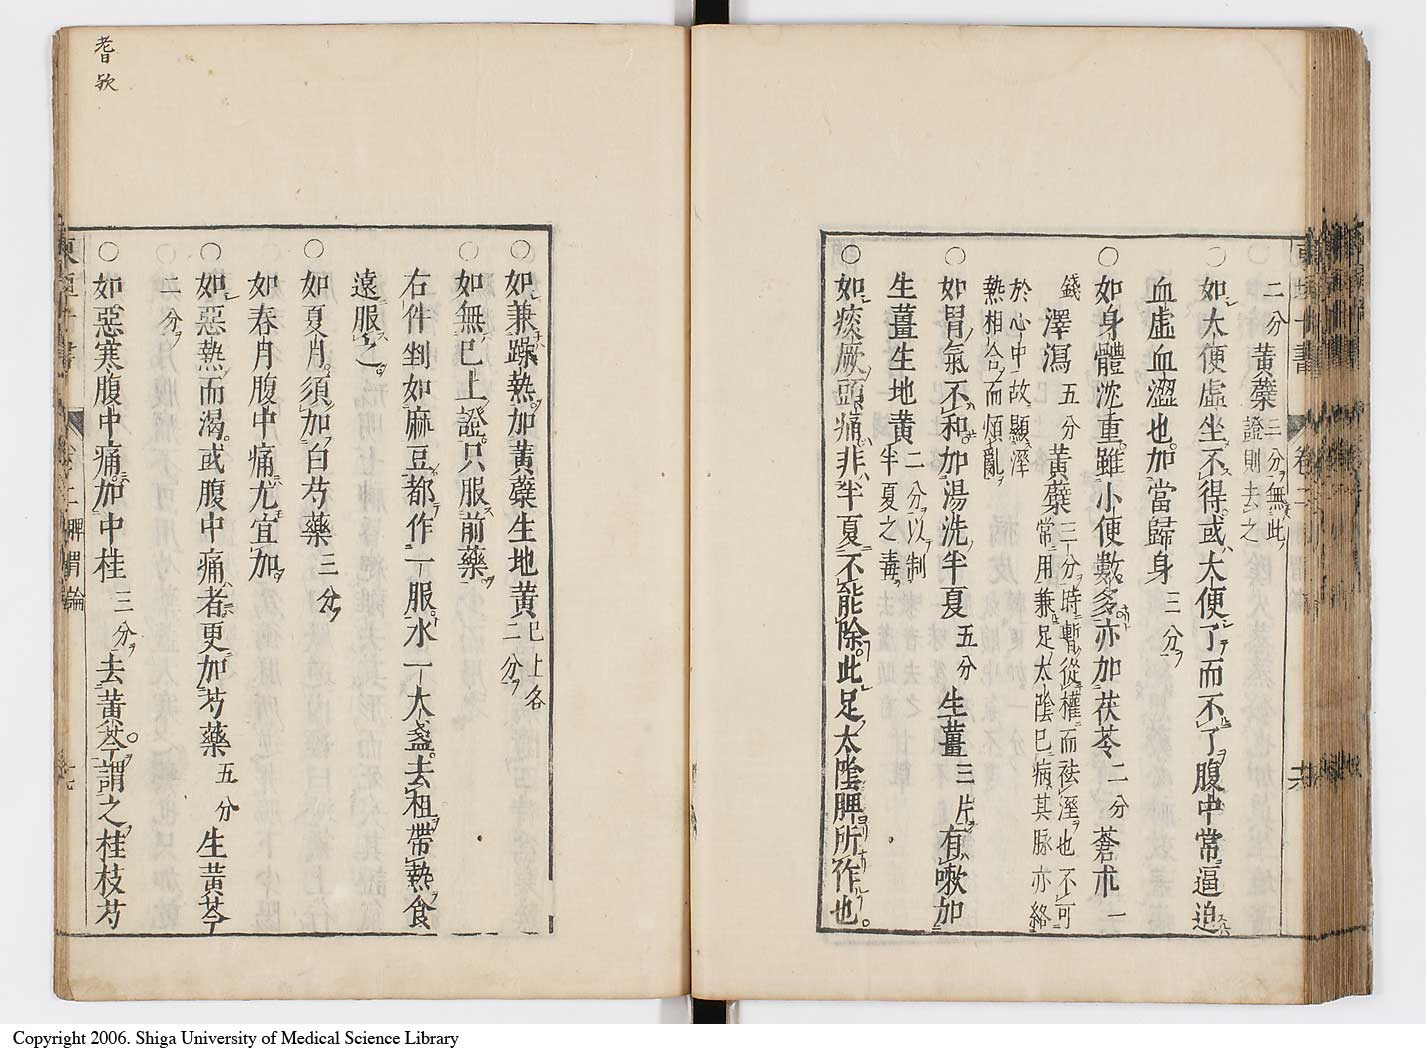 二分黄蘗三分無此證則去之
○如大便虛坐不得或大便了而不了腹中常逼迫
血虛血澀也加當歸身三分
○如身體沈重雖小便數多亦加茯苓二分蒼朮一
錢澤瀉五分黄蘗三分時暫從權而祛溼也不可常用兼足太陰已病其脉亦絡
於心中故顯溼熱相合而煩亂
○如胃氣不和加湯洗半夏五分生薑三片有嗽加
生薑生地黄二分以制半夏之毒
○如痰厥頭痛非半夏不能除此足太陰脾所作也
○如兼躁熱加黄蘗生地黄已上各二分
○如無已上證只服前藥
右件剉如麻豆都作一服水一大盞去柤帶熱食
遠服之
○如夏月須加白芍藥三分
如春月腹中痛尤宜加
○如惡熱而渴或腹中痛者更加芍藥五分生黄芩
二分
○如惡寒腹中痛加中桂三分去黄芩謂之桂枝芍
卷二脾胃論
耆
Copyright 2006. Shiga University of Medical Science Library